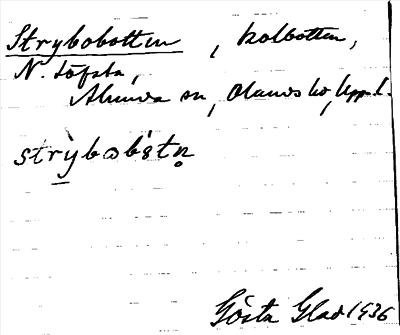 Strybobotten, kolbotten,
N. Löfsta,
Alunda sn, Olands hd, Uppl.
strỳbɷbòtn̥
Gösta Glad 1936